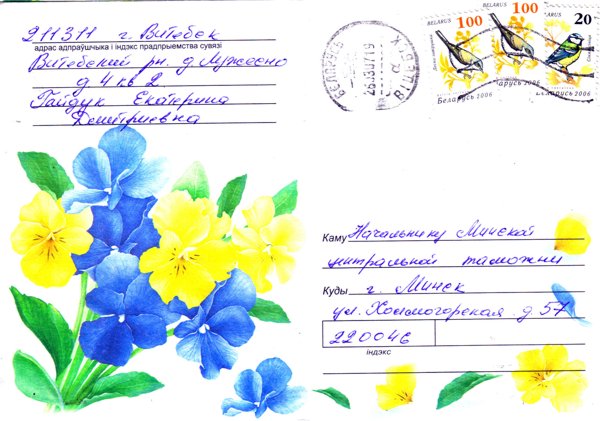 211311 г. Витебск
адрас адпраўшчыка і індэкс прадпрыемства сувязі
Витебский рн. д Лужесно
д 4 кв 2
Гайдук Екатерина
Дмитриевна
BELARUS
100
BELARUS
100
BELARUS
20
Беларусь 2006
арусь 2006
Беларусь 2006
БЕЛАРУСЬ
Каму Начальнику Минской
центральной таможни
Куды г. Минск
ул. Холмогорская д. 57
220046
індэкс